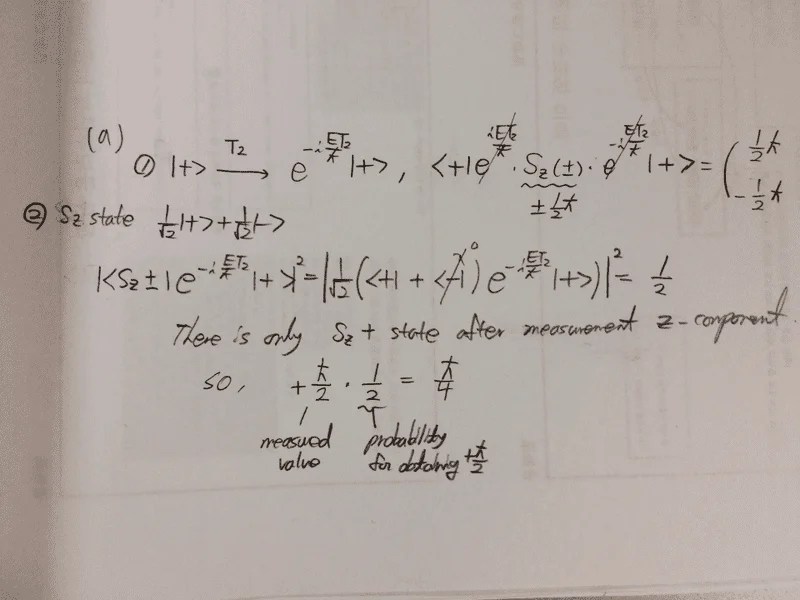 (a)
① |+> T₂ ⟶ e^{-i ET₂/ħ} |+> , <+| e^{iET₂/ħ} · Sz(±) · e^{-iET₂/ħ} |+> = ( ½ħ
± ½ħ - ½ħ
② Sz state 1/√2 |+> + 1/√2 |->
|<Sz ± | e^{-i ET₂/ħ} | + >|² = | 1/√2 (<+| + <-|) ⁰ e^{-i ET₂/ħ} |+>)|² = 1/2
There is only Sz + state after measurement z-conponent.
so, + ħ/2 · 1/2 = ħ/4
measured probability
value for obtaining + ħ/2